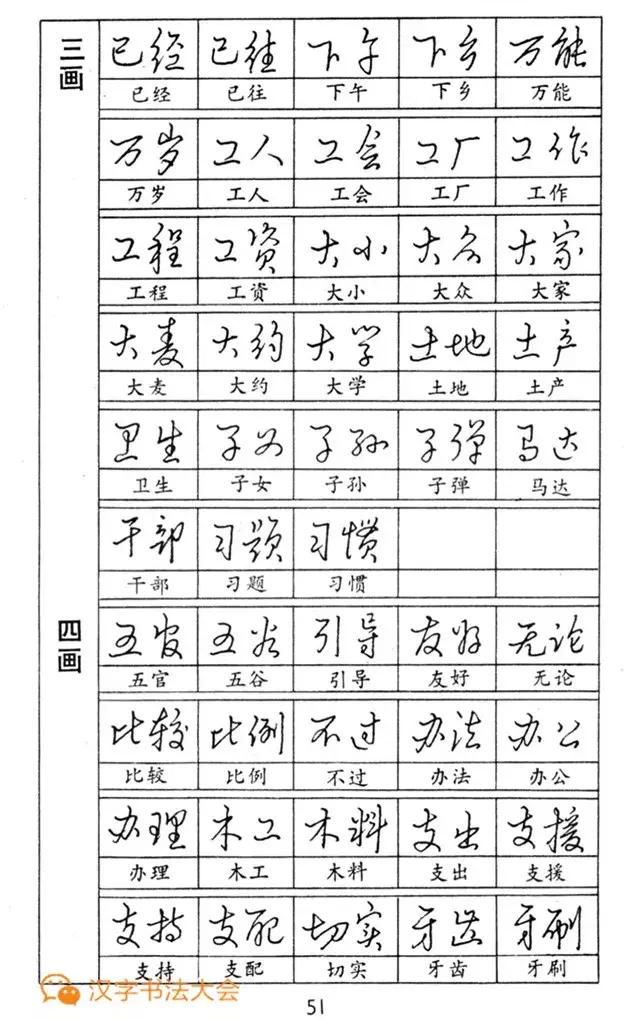 三画
已经 已往 下午 下乡 万能
已经 已往 下午 下乡 万能
万岁 工人 工会 工厂 工作
万岁 工人 工会 工厂 工作
工程 工资 大小 大众 大家
工程 工资 大小 大众 大家
大麦 大约 大学 土地 土产
大麦 大约 大学 土地 土产
卫生 子女 子孙 子弹 马达
卫生 子女 子孙 子弹 马达
干部 习题 习惯
干部 习题 习惯
四画
五官 五谷 引导 友好 无论
五官 五谷 引导 友好 无论
比较 比例 不过 办法 办公
比较 比例 不过 办法 办公
办理 木工 木料 支出 支援
办理 木工 木料 支出 支援
支持 支配 切实 牙齿 牙刷
支持 支配 切实 牙齿 牙刷
汉字书法大会
51